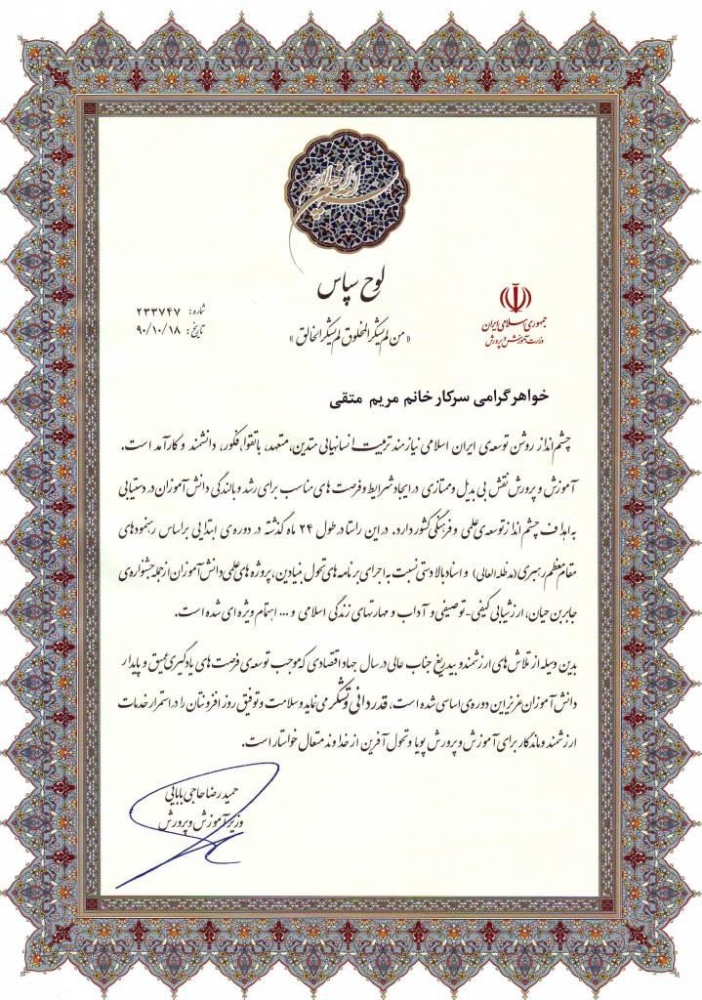 لوح سپاس
شماره: ۲۳۳۷۴۷
تاریخ: ۹۰/۱۰/۱۸
« من لم یشکر المخلوق لم یشکر الخالق »
جمهوری اسلامی ایران
وزارت آموزش و پرورش
خواهر گرامی سرکار خانم مریم متقی
چشم انداز روشن توسعه‌ی ایران اسلامی نیازمند تربیت انسانهایی متدین، متعهد، باتقوا، فکور، دانشمند و کارآمد است.
آموزش و پرورش نقش بی بدیل و ممتازی در ایجاد شرایط و فرصت های مناسب برای رشد و بالندگی دانش آموزان در دستیابی
به اهداف چشم انداز توسعه‌ی علمی و فرهنگی کشور دارد. در این راستا در طول ۲۴ ماه گذشته در دوره‌ی ابتدایی براساس رهنمودهای
مقام معظم رهبری (مدظله العالی) و اسناد بالادستی نسبت به اجرای برنامه های تحول بنیادین، پروژه های علمی دانش آموزان از جمله جشنواره‌ی
جابربن حیان، ارزشیابی کیفی-توصیفی و آداب و مهارتهای زندگی اسلامی و ... اهتمام ویژه ای شده است.
بدین وسیله از تلاش های ارزشمند و بیدریغ جناب عالی در سال جهاد اقتصادی که موجب توسعه‌ی فرصت های یادگیری عمیق و پایدار
دانش آموزان عزیز این دوره‌ی اساسی شده است، قدردانی و تشکر می نماید و سلامت و توفیق روز افزونتان را در استمرار خدمات
ارزشمند و ماندگار برای آموزش و پرورش پویا و تحول آفرین از خداوند متعال خواستار است.
حمیدرضا حاجی بابایی
وزیر آموزش و پرورش